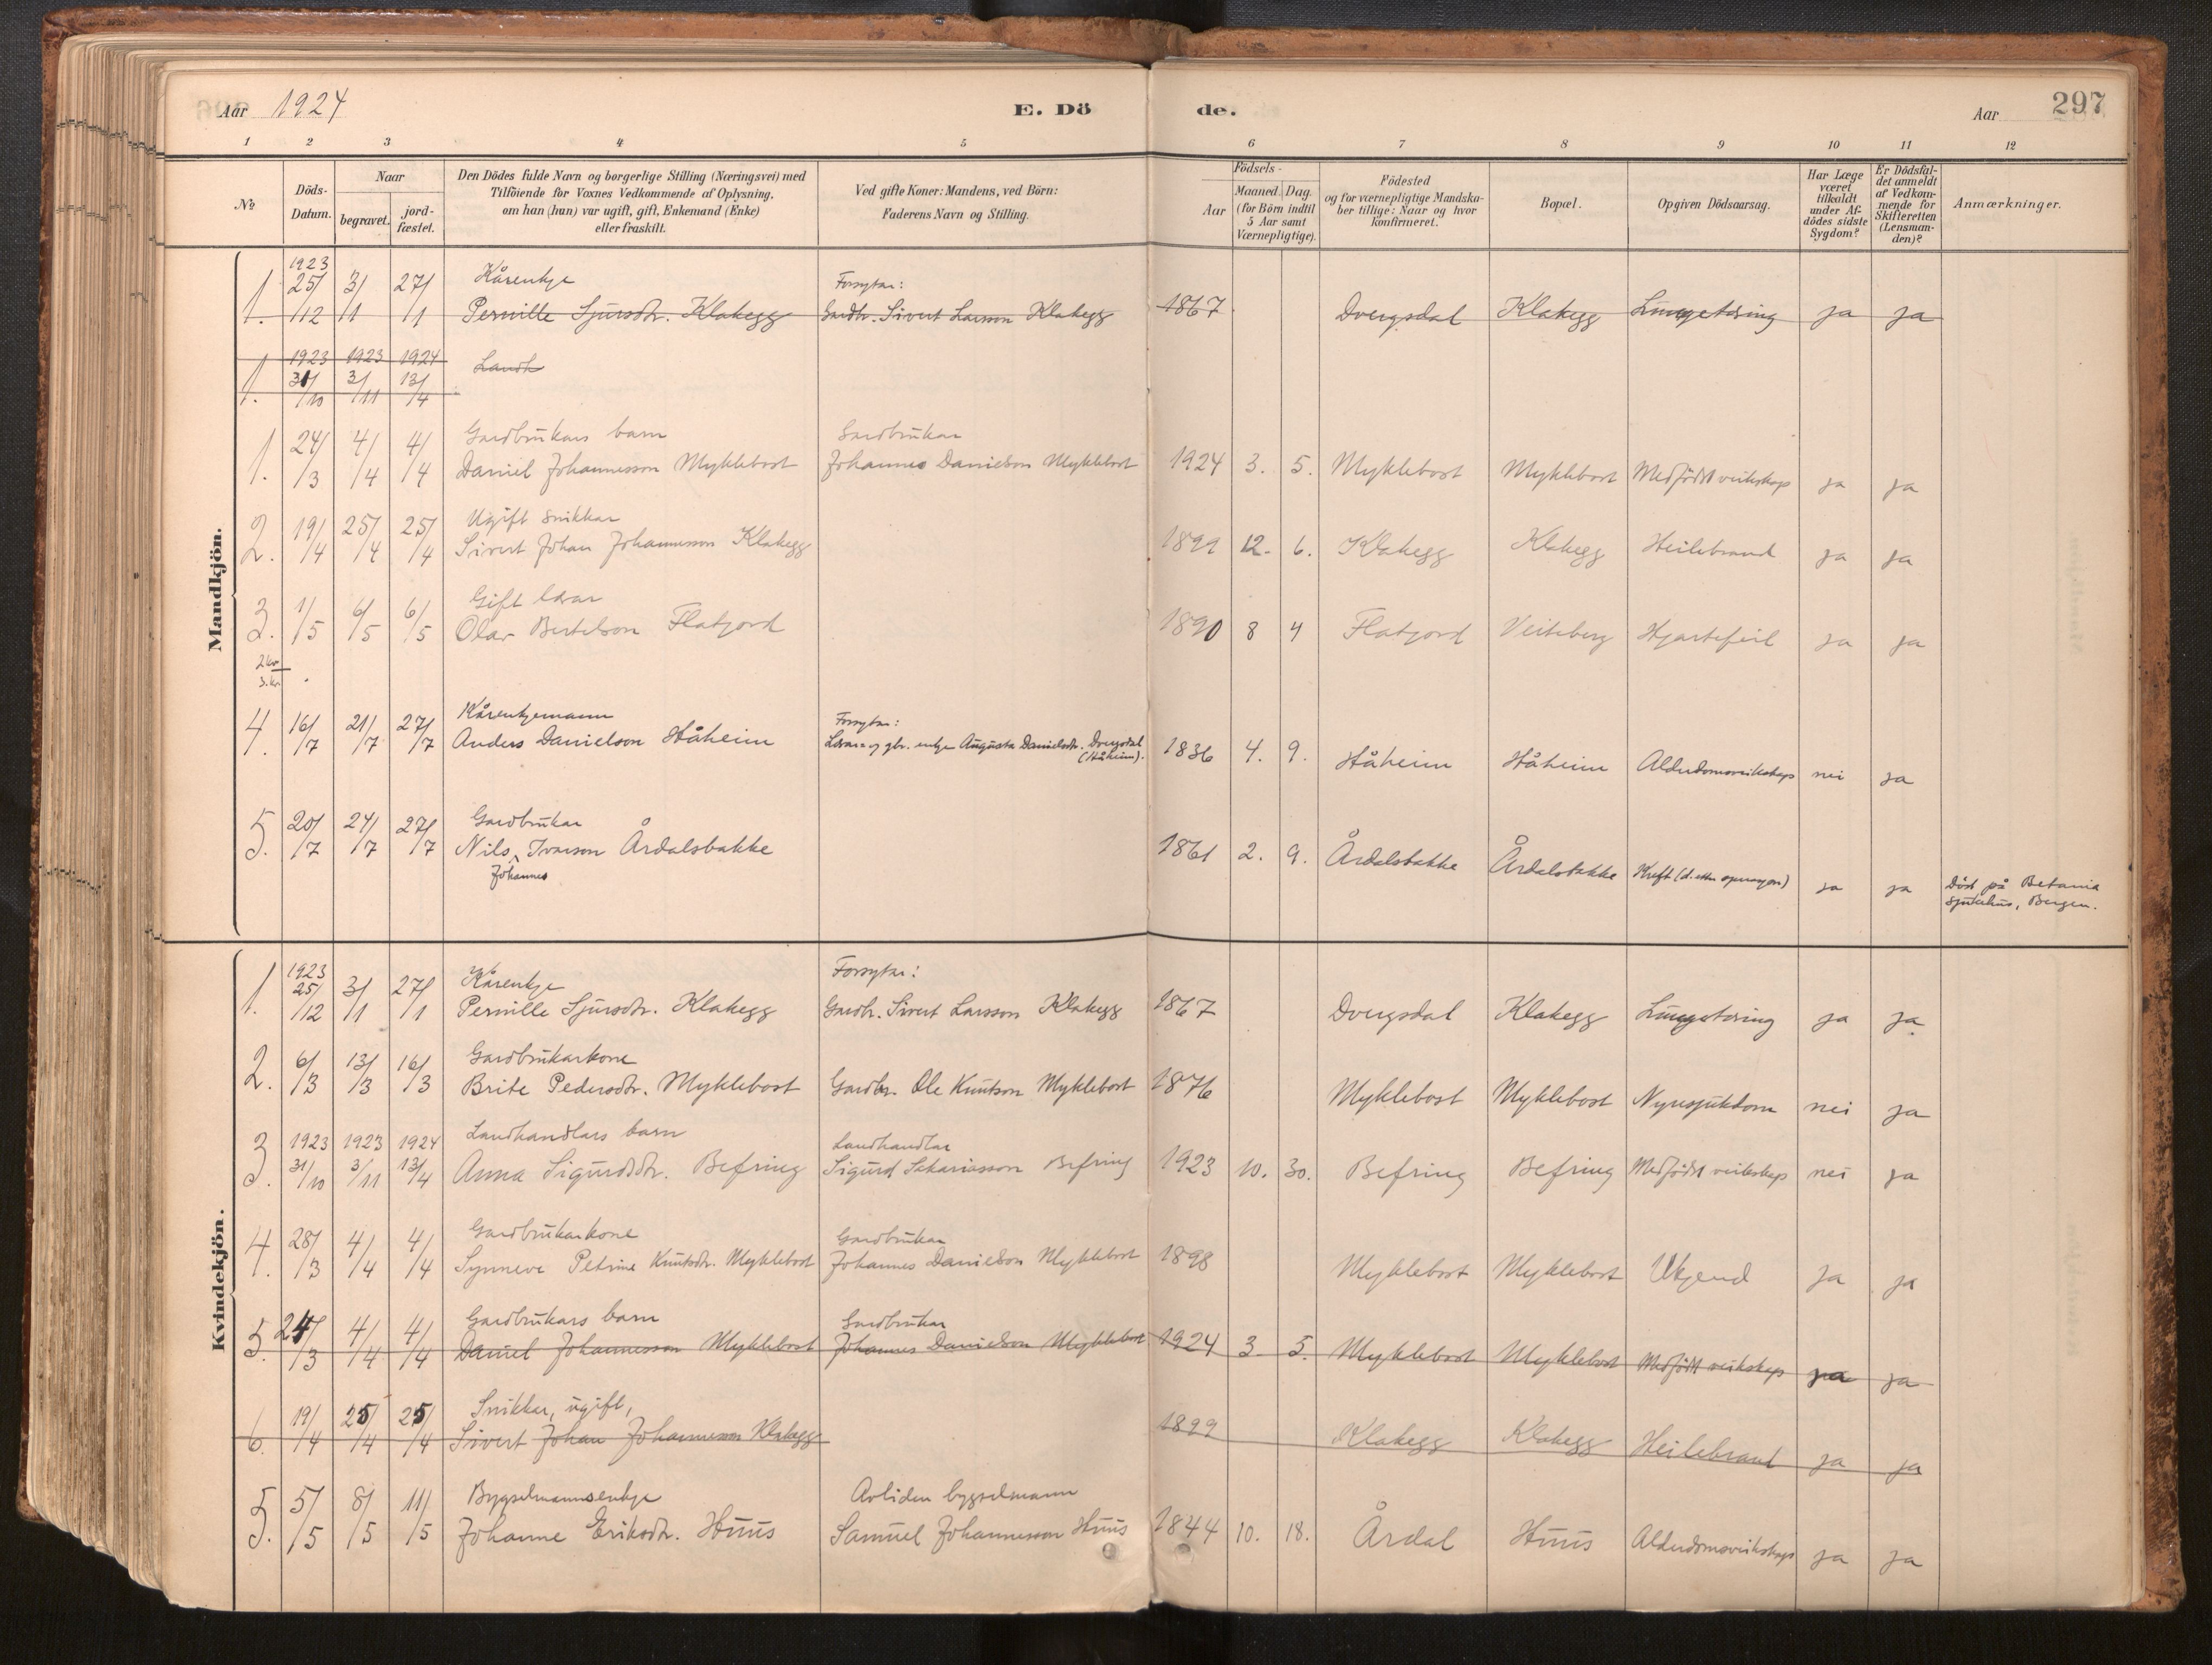 Aar 1924
E. Dö
de.
Aar
297
1 2 3 4 5 6 7 8 9 10 11 12
No
Döds-
Datum.
Naar
begravet.
jord-
fæstet.
Den Dödes fulde Navn og borgerlige Stilling (Næringsvei) med
Tilföiende for Voxnes Vedkommende af Oplysning,
om han (hun) var ugift, gift, Enkemand (Enke)
eller fraskilt.
Ved gifte Koner: Mandens, ved Börn:
Faderens Navn og Stilling.
Födsels-
Aar
Maaned. Dag.
(for Börn indtil
5 Aar samt
Værnepligtige).
Födested
og for værnepligtige Mandska-
ber tillige: Naar og hvor
konfirmeret.
Bopæl.
Opgiven Dödsaarsag.
Har Læge
været
tilkaldt
under Af-
dödes sidste
Sygdom?
Er Dödsfal-
det anmeldt
af Vedkom-
mende for
Skifteretten
(Lensman-
den)?
Anmærkninger.
Mandkjön.
1923
25/ 3/ 27/ Kårenkje Forsytar:
1. /12 /1 /1 Pernille Sjursdtr. Klakegg Gardbr. Sivert Larsson Klakegg 1867 Dvergsdal Klakegg Lungetæring ja ja
1923 1923 1924
1. 31/10 3/11 13/4 Landh
Gardbrukars barn Gardbrukar
1. 24/3 4/4 4/4 Daniel Johannesson Myklebost Johannes Danielson Myklebost 1924 3. 5. Myklebost Myklebost Medfödt veikskap ja ja
Ugift snikkar
2. 19/4 25/4 25/4 Sivert Johan Johannesson Klakegg 1899 12. 6. Klakegg Klakegg Heilebrand ja ja
Gift lærar
3. 1/5 6/5 6/5 Olav Bertelson Flatjord 1890 8 4 Flatjord Veiteberg Hjartefeil ja ja
2 kv
3. kv.
Kårenkjemann Forsytar:
4. 16/7 21/7 27/7 Anders Danielson Håheim Lærar- og gbr. enkje Augusta Danielsdtr. Dvergsdal
(Håheim). 1836 4. 9. Håheim Håheim Alderdomsveikskap nei ja
Gardbrukar
5. 20/7 24/7 27/7 Nils Ivarson Årdalsbakke 1861 2. 9. Årdalsbakke Årdalsbakke Kreft (d. etter operasjon) ja ja Död på Betania
Johannes
sjukehus, Bergen.
Kvindekjön.
1923 Kårenkje Forsytar:
1. 25/12 3/1 27/1 Pernille Sjursdtr. Klakegg Gardbr. Sivert Larsson Klakegg 1867 Dvergsdal Klakegg Lungetæring ja ja
Gardbrukarkone
2. 6/3 13/3 16/3 Brite Pedersdtr. Myklebost Gardbr. Ole Knutson Myklebost 1876 Myklebost Myklebost Nyresjukdom nei ja
1923 1923 1924 Landhandlars barn Landhandlar
3. 31/10 3/11 13/4 Anna Sigurdsdtr. Befring Sigurd Sakariasson Befring 1923 10. 30. Befring Befring Medfödt veikskap nei ja
Gardbrukarkone Gardbrukar
4. 28/3 4/4 4/4 Synneve Petrine Knutsdtr. Myklebost Johannes Danielson Myklebost 1898 Myklebost Myklebost Ukjend ja ja
Gardbrukars barn Gardbrukar
5. 24/3 4/4 4/4 Daniel Johannesson Myklebost Johannes Danielson Myklebost 1924 3 5. Myklebost Myklebost Medfödt veikskap ja ja
Snikkar, ugift,
6. 19/4 25/4 25/4 Sivert Johan Johannesson Klakegg 1899 Klakegg Klakegg Heilebrand ja ja
Bygselmannsenkje Avliden bygselmann
5. 5/5 8/5 11/5 Johanne Eriksdtr. Huus Samuel Johannesson Huus 1844 10. 18. Årdal Huus Alderdomsveikskap ja ja